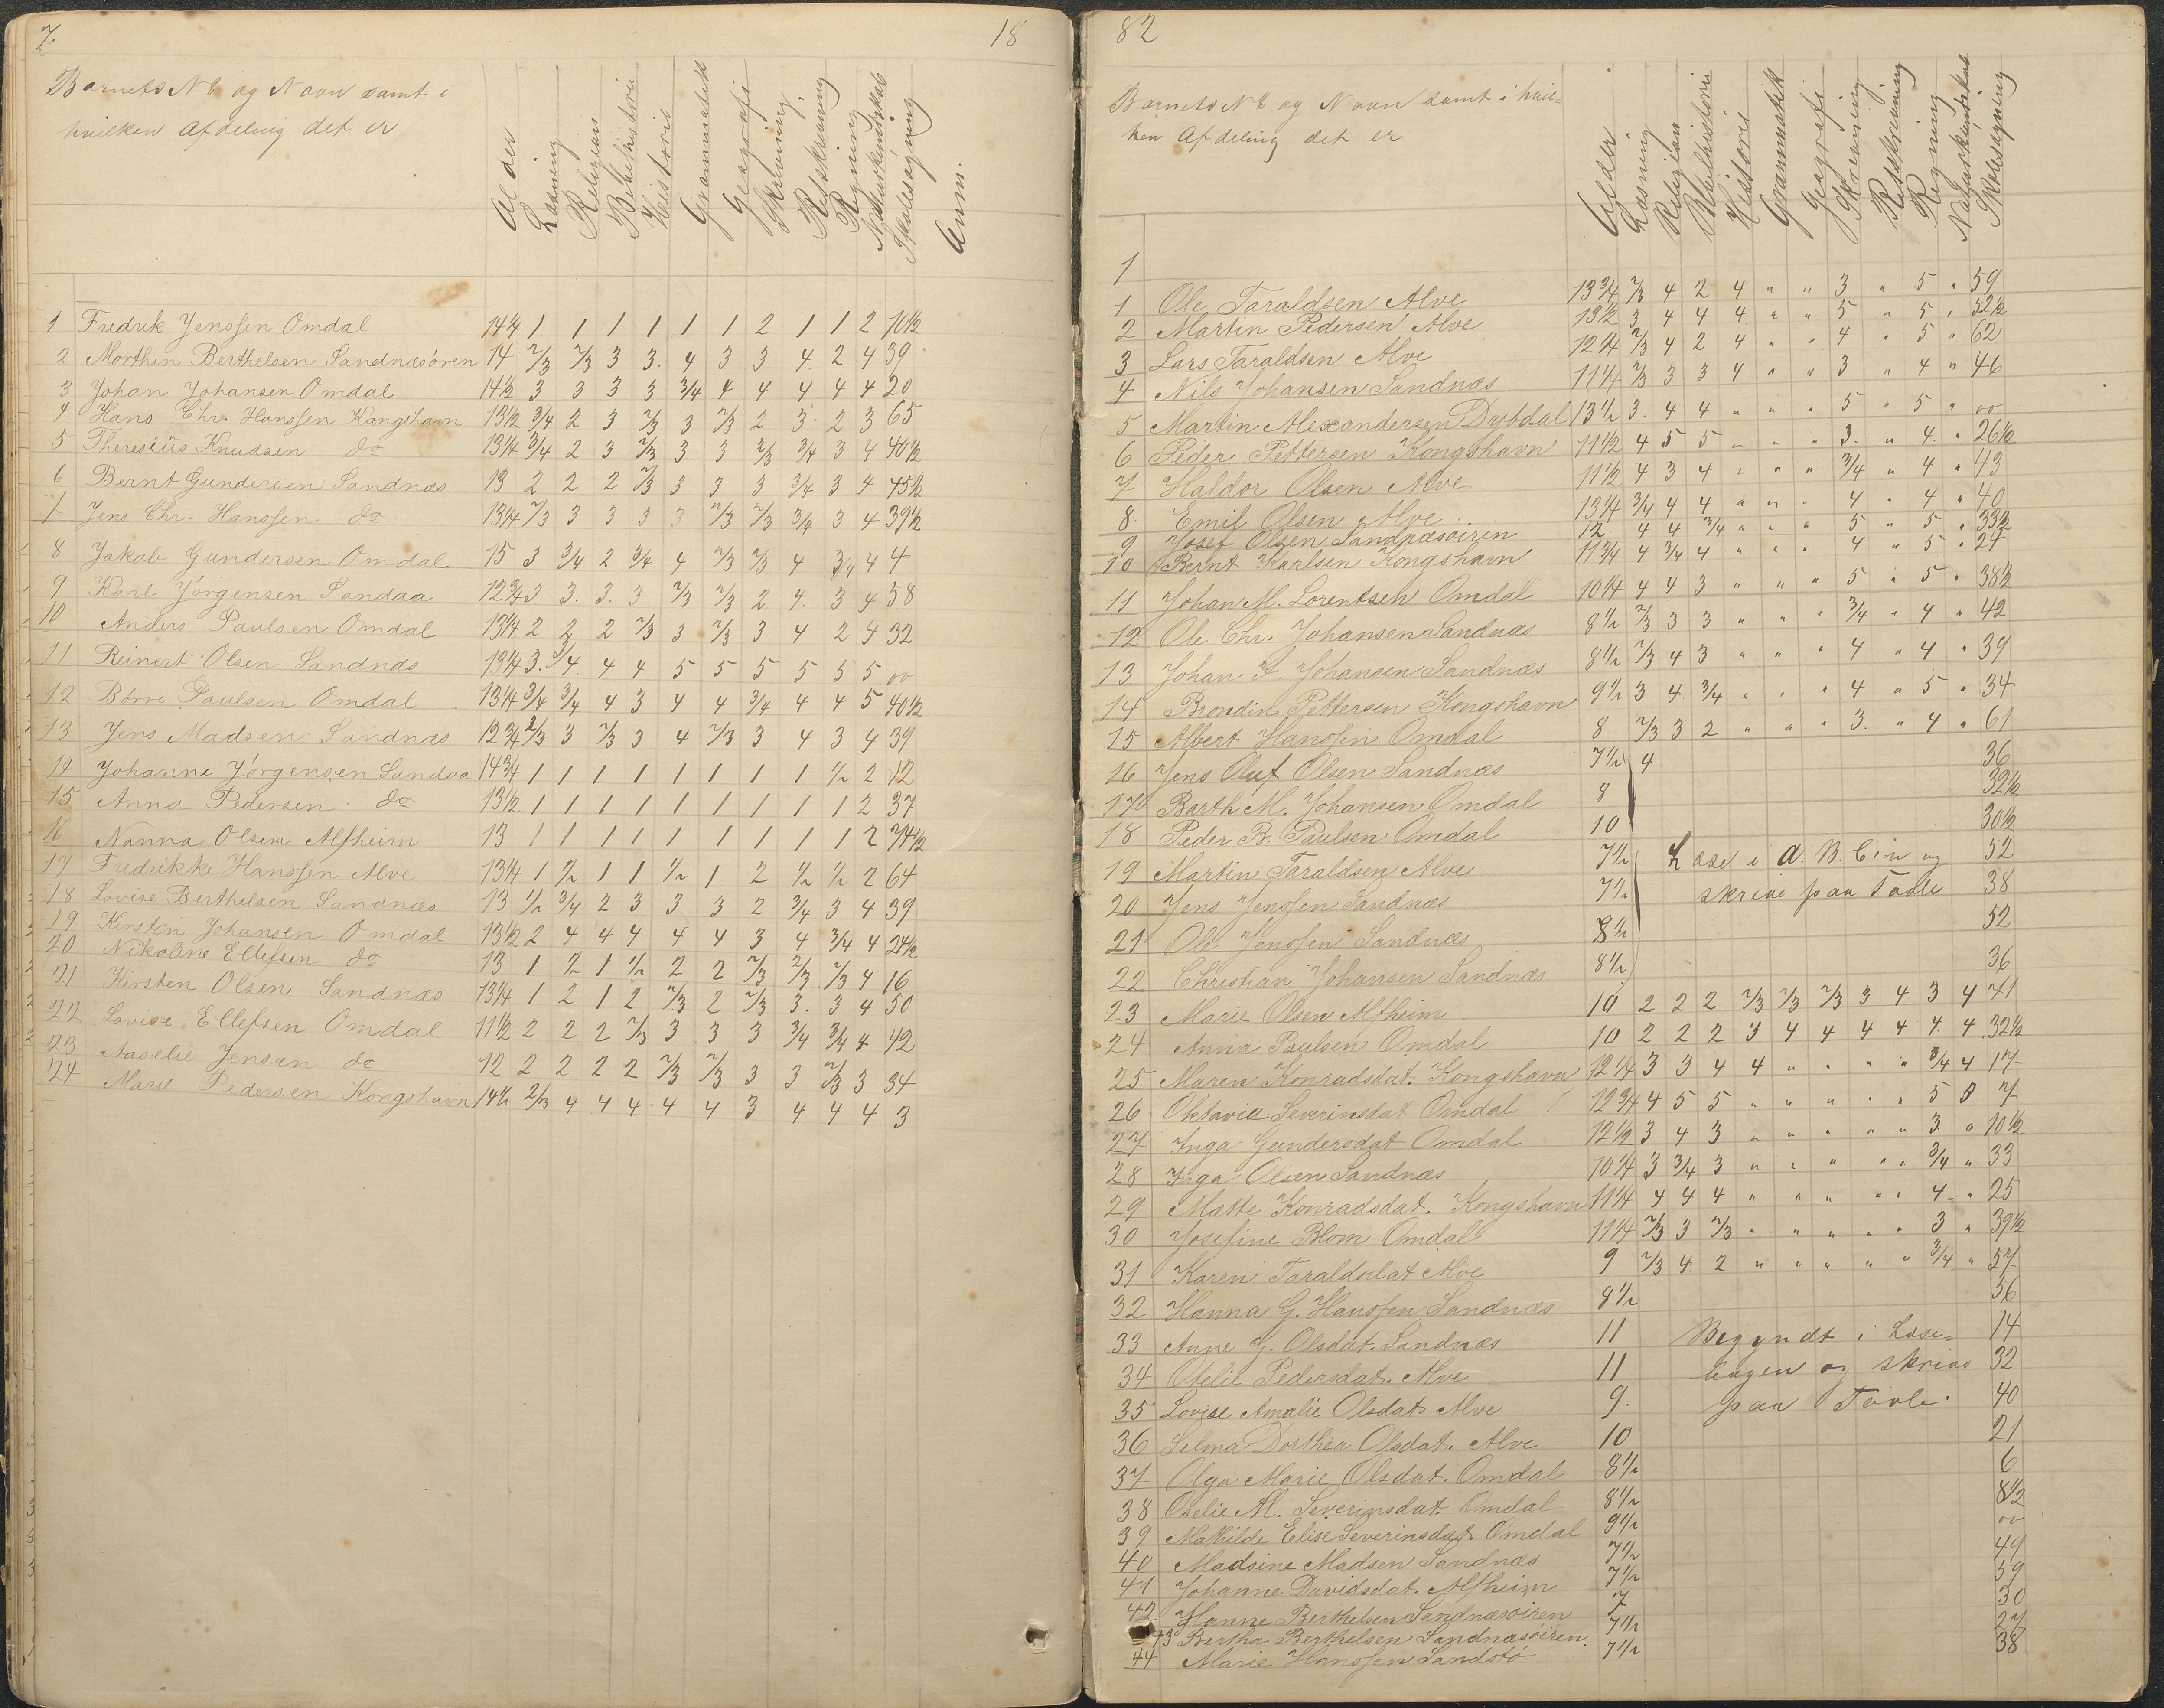 7.
18
Barnets No og Navn samt i
hvilken Afdeling det er
Alder
Læsning
Religion
Bibelhistorie
Historie
Grammatik
Geografi
Skrivning
Retskrivning
Regning
Naturkundskab
Skolesøgning
Anm.
1 Fredrik Jenssen Omdal 14¼ 1 1 1 1 1 1 2 1 1 2 10½
2 Morthen Berthelsen Sandnæsören 14 2/3 2/3 3 3. 4 3 3 4. 2 4 39
3 Johan Johansen Omdal 14½ 3 3 3 3 3/4 4 4 4 4 4 20
4 Hans Chr. Hanssen Kongshavn 13½ 3/4 2 3 2/3 3 2/3 2 3. 2 3 65
5 Theresius Knudsen do 13¼ 3/4 2 3 2/3 3 3 2/3 3/4 3 4 40½
6 Bernt Gundersen Sandnæs 13 2 2 2 2/3 3 3 3 3/4 3 4 45½
7 Jens Chr. Hanssen do 13¼ 2/3 3 3 3 3 2/3 2/3 3/4 3 4 39½
8 Jakob Gundersen Omdal 15 3 3/4 2 3/4 4 2/3 2/3 4 3/4 4 4
9 Karl Jörgensen Sandaa 12¾ 3 3. 3. 3 2/3 2/3 2 4. 3 4 58
10 Anders Paulsen Omdal 13¼ 2 2 2 2/3 3 2/3 3 4 2 4 32
11 Reinert Olsen Sandnæs 13¼ 3. 3/4 4 4 5 5 5 5 5 5 oo
12 Börre Paulsen Omdal 13¼ 3/4 3/4 4 3 4 4 3/4 4 4 5 40½
13 Jens Madsen Sandnæs 12¾ 2/3 3 2/3 3 4 2/3 3 4 3 4 39
14 Johanne Jörgensen Sandaa 14¾ 1 1 1 1 1 1 1 1 1/2 2 12
15 Anna Pedersen do 13½ 1 1 1 1 1 1 1 1 1 2 37
16 Nanna Olsen Alfheim 13 1 1 1 1 1 1 1 1 1 2 74½
17 Fredrikke Hanssen Alve 13¼ 1 1/2 1 1 1/2 1 2 1/2 1/2 2 64
18 Lovise Berthelsen Sandnæs 13 1/2 3/4 2 3 3 3 2 3/4 3 4 39
19 Kirsten Johansen Omdal 13½ 2 4 4 4 4 4 3 4 3/4 4 24½
20 Nikoline Ellefsen do 13 1 1/2 1 1/2 2 2 2/3 2/3 2/3 4 16
21 Kirsten Olsen Sandnæs 13¼ 1 2 1 2 2/3 2 2/3 3. 3 4 50
22 Lovise Ellefsen Omdal 11½ 2 2 2 2/3 3 3 3 3/4 3/4 4 42
23 Aaselie Jensen do 12 2 2 2 2 2/3 2/3 3 3 2/3 3 34
24 Marie Pedersen Kongshavn 14½ 2/3 4 4 4 4 4 3 4 4 4 3
82
Barnets No og Navn samt i hvil-
ken Afdeling det er
Alder
Læsning
Religion
Bibelhistorie
Historie
Grammatik
Geografi
Skrivning
Retskrivning
Regning
Naturkundskab
Skolesøgning
1
1 Ole Taraldsen Alve 13¾ 2/3 4 2 4 " " 3 " 5 " 59
2 Martin Pedersen Alve 13½ 3 4 4 4 " " 5 " 5 " 52½
3 Lars Taraldsen Alve 12¼ 2/3 4 2 4 " " 4 " 5 " 62
4 Nils Johansen Sandnæs 11¼ 2/3 3 3 4 " " 3 " 4 " 46
5 Martin Alexandersen Dybdal 13½ 3. 4 4 " " " 5 " 5 " oo
6 Peder Pettersen Kongshavn 11½ 4 5 5 " " " 3. " 4. " 26½
7 Haldor Olsen Alve 11½ 4 3 4 " " " 3/4 " 4 " 43
8 Emil Olsen Alve 13¼ 3/4 4 4 " " " 4 " 4 " 40
9 Josef Olsen Sandnæsöiren 12 4 4 3/4 " " " 5 " 5 " 33½
10 Bernt Karlsen Kongshavn 11¾ 4 3/4 4 " " " 4 " 5 " 27
11 Johan M. Lorentsen Omdal 10¼ 4 4 3 " " " 5 " 5 " 38½
12 Ole Chr. Johansen Sandnæs 8½ 2/3 3 3 " " " 3/4 " 4 " 42
13 Johan F. Johansen Sandnæs 8½ 2/3 4 3 " " " 4 " 4 " 39
14 Brondin Pettersen Kongshavn 9½ 3 4. 3/4 " " " 4 " 5 " 34
15 Albert Hanssen Omdal 8 2/3 3 2 " " " 3. " 4 " 61
16 Jens Oluf Olsen Sandnæs 7½ 4 36
17 Barth M. Johansen Omdal 8 32½
18 Peder B. Paulsen Omdal 10 30½
19 Martin Taraldsen Alve 7½ Læse i A.B.C in og 52
20 Jens Jenssen Sandnæs 7½ skrive paa Tavle 38
21 Ole Jenssen Sandnæs 8½ 52
22 Christian Johansen Sandnæs 8½ 36
23 Marie Olsen Alfheim 10 2 2 2 2/3 2/3 2/3 3 4 3 4 71
24 Anna Paulsen Omdal 10 2 2 2 3 4 4 4 4 4. 4 32½
25 Maren Konradsdat. Kongshavn 12¼ 3 3 4 4 " " " " 3/4 4 17
26 Oktavia Severinsdat Omdal 12¾ 4 5 5 " " " " " 5 0 7
27 Inga Gundersdat Omdal 12½ 3 4 3 " " " " " 3 " 10½
28 Inga Olsen Sandnæs 10¼ 3 3/4 3 " " " " " 3/4 " 33
29 Mætte Konradsdat. Kongshavn 11¼ 4 4 4 " " " " " 4 " 25
30 Josefine Blom Omdal 11¼ 2/3 3 2/3 " " " " " 3 " 39½
31 Karen Taraldsdat Alve 9 2/3 4 2 " " " " " 3/4 " 57
32 Hanna G. Hanssen Sandnæs 8½ 36
33 Anne G. Olsdat. Sandnæs 11 Begyndt i Læse- 14
34 Otelie Pedersdat. Alve 11 bogen og skrive 32
35 Lovise Amalie Olsdat. Alve 9. paa Tavle. 40
36 Selma Dorthea Olsdat. Alve 10 21
37 Olga Marie Olsdat. Omdal 8½ 6
38 Oselie M. Severinsdat. Omdal 8½ 8½
39 Mathilde Elise Severinsdat. Omdal 9½ oo
40 Madsine Madsen Sandnæs 7½ 49
41 Johanne Davidsdat. Alfheim 7½ 59
42 Hanne Berthelsen Sandnæsöiren 7 30
43 Bertha Berthelsen Sandnæsöiren. 7½ 27
44 Marie Hanssen Sandstö 7½ 38